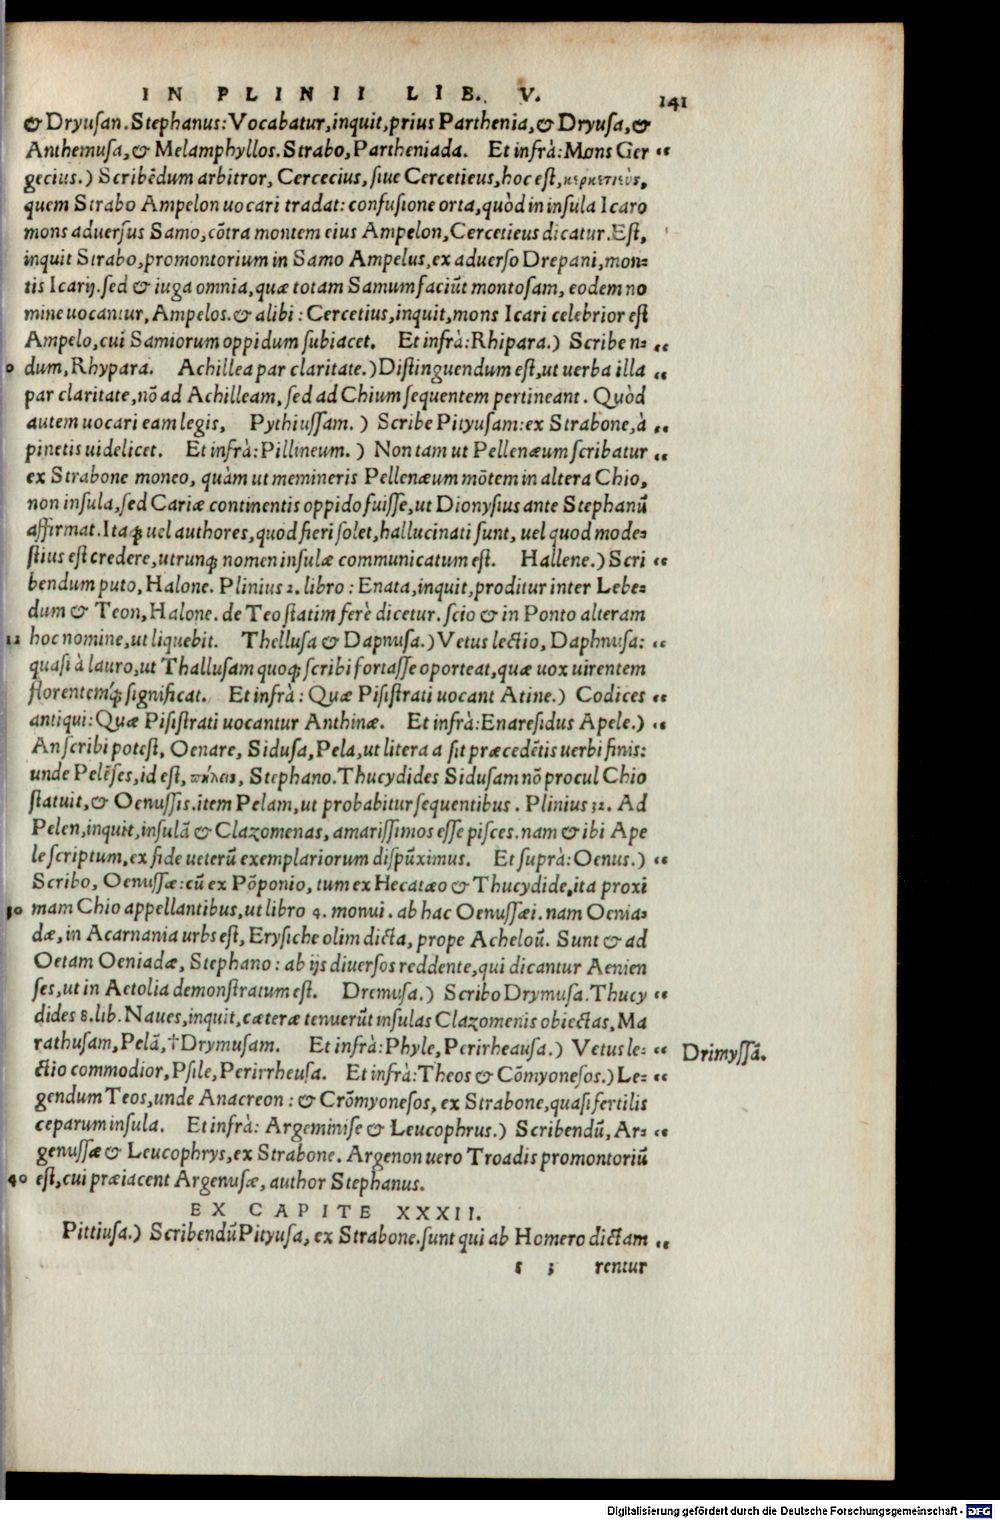 IN PLINII LIB. V. 141
& Dryusan. Stephanus: Vocabatur, inquit, prius Parthenia, & Dryusa, &
Anthemusa, & Melamphyllos. Strabo, Partheniada. Et infrà: Mons Ger „
gecius.) Scribēdum arbitror, Cercecius, siue Cercetieus, hoc est, κερκετιεὺς,
quem Strabo Ampelon uocari tradat: confusione orta, quòd in insula Icaro
mons aduersus Samo, cōtra montem eius Ampelon, Cercetieus dicatur. Est,
inquit Strabo, promontorium in Samo Ampelus, ex aduerso Drepani, mon=
tis Icarij. sed & iuga omnia, quæ totam Samum faciūt montosam, eodem no
mine uocantur, Ampelos. & alibi: Cercetius, inquit, mons Icari celebrior est
Ampelo, cui Samiorum oppidum subiacet. Et infrà: Rhipara.) Scriben= „
dum, Rhypara. Achillea par claritate.) Distinguendum est, ut uerba illa „
par claritate, nō ad Achilleam, sed ad Chium sequentem pertineant. Quòd
autem uocari eam legis, Pythiussam.) Scribe Pityusam: ex Strabone, à „
pinetis uidelicet. Et infrà: Pillineum.) Non tam ut Pellenæum scribatur „
ex Strabone moneo, quàm ut memineris Pellenæum mōtem in altera Chio,
non insula, sed Cariæ continentis oppido fuisse, ut Dionysius ante Stephanū
affirmat. Itaq; uel authores, quod fieri solet, hallucinati sunt, uel quod mode=
stius est credere, utrunq; nomen insulæ communicatum est. Hallene.) Scri „
bendum puto, Halone. Plinius 2. libro: Enata, inquit, proditur inter Lebe=
dum & Teon, Halone. de Teo statim ferè dicetur. scio & in Ponto alteram
hoc nomine, ut liquebit. Thellusa & Dapnusa.) Vetus lectio, Daphnusa: „
quasi à lauro, ut Thallusam quoq; scribi fortasse oporteat, quæ uox uirentem
florentemq́; significat. Et infrà: Quæ Pisistrati uocant Atine.) Codices „
antiqui: Quæ Pisistrati uocantur Anthinæ. Et infrà: Enaresidus Apele.) „
An scribi potest, Oenare, Sidusa, Pela, ut litera a sit præcedētis uerbi finis:
unde Pelēses, id est, Stephano. Thucydides Sidusam nō procul Chio
statuit, & Oenussis. item Pelam, ut probabitur sequentibus. Plinius 32. Ad
Pelen, inquit, insulā & Clazomenas, amarissimos esse pisces. nam & ibi Ape
le scriptum, ex fide ueterū exemplariorum dispūximus. Et suprà: Oenus.) „
Scribo, Oenussæ: cū ex Pōponio, tum ex Hecatæo & Thucydide, ita proxi
30 mam Chio appellantibus, ut libro 4. monui. ab hac Oenussæi. nam Oenia=
dæ, in Acarnania urbs est, Erysiche olim dicta, prope Acheloū. Sunt & ad
Oetam Oeniadæ, Stephano: ab ijs diuersos reddente, qui dicantur Aenien
ses, ut in Aetolia demonstratum est. Dremusa.) Scribo Drymusa. Thucy „
dides 8. lib. Naues, inquit, cæteræ tenuerūt insulas Clazomenis obiectas, Ma
rathusam, Pelā, †Drymusam. Et infrà: Phyle, Perirheausa.) Vetus le= „ Drimyssā.
ctio commodior, Psile, Perirrheusa. Et infrà: Theos & Cōmyonesos.) Le= „
gendum Teos, unde Anacreon: & Crōmyonesos, ex Strabone, quasi fertilis
ceparum insula. Et infrà: Argeminise & Leucophrus.) Scribendū, Ar= „
genussæ & Leucophrys, ex Strabone. Argenon uero Troadis promontoriū
40 est, cui præiacent Argenusæ, author Stephanus.
EX CAPITE XXXII.
Pittiusa.) Scribendū Pityusa, ex Strabone. sunt qui ab Homero dictam „
s 3 rentur
Digitalisierung gefördert durch die Deutsche Forschungsgemeinschaft - DFG